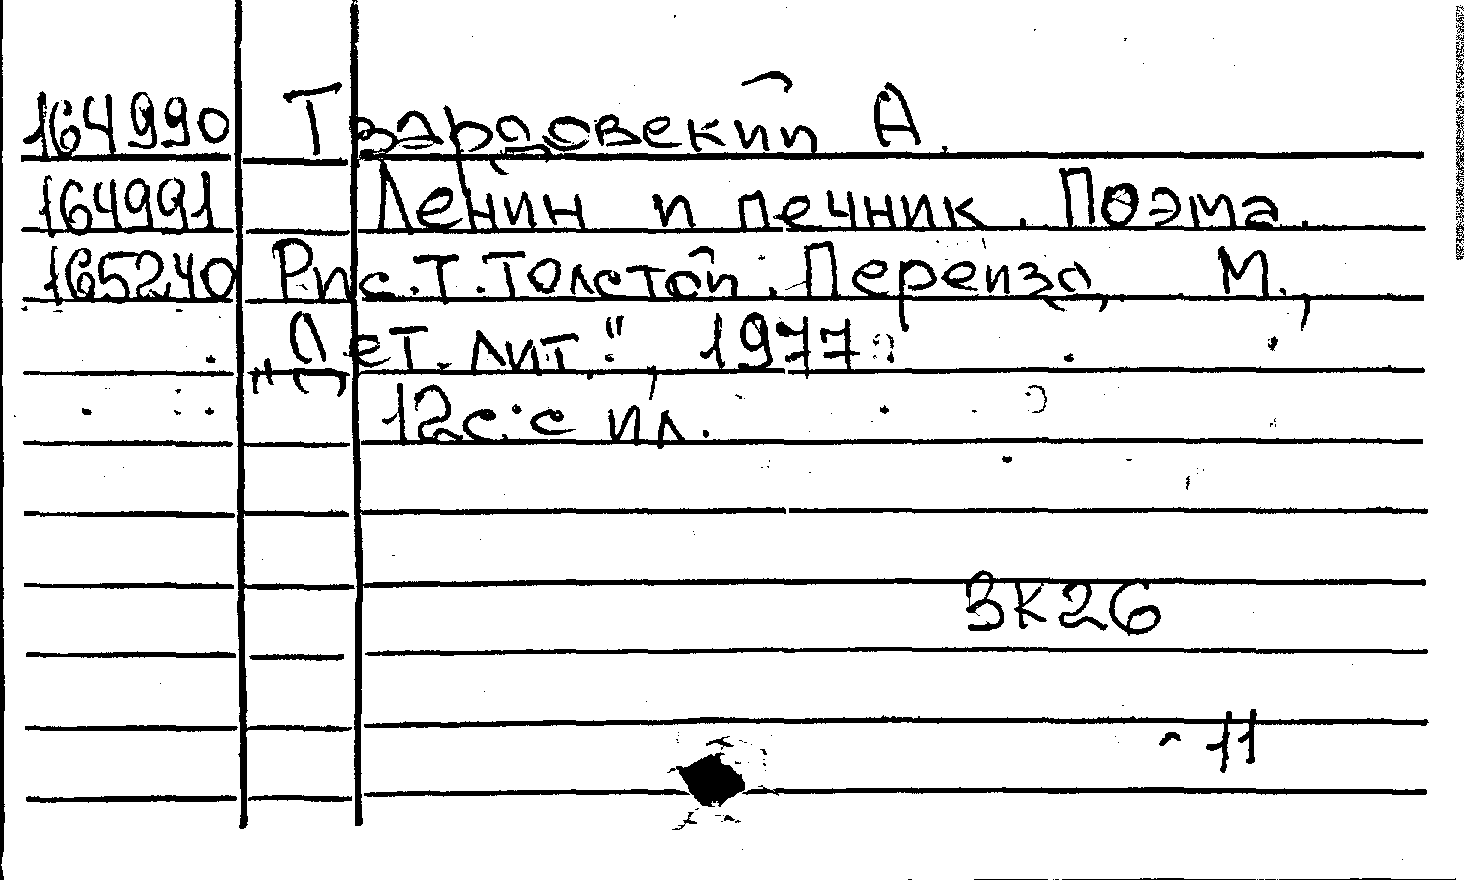 164990 Твардовский А.
164991 Ленин и печник. Поэма.
165240 Рис. Т. Толстой. Переизд. М.,
„Дет. лит.", 1977.
12с. с ил.
3К26
- 11